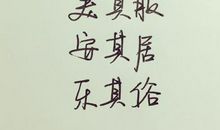 美其服
安其居
乐其俗